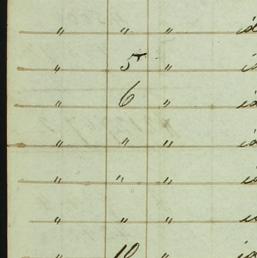 " " " id
" 5 " id
" 6 " id
" " " id
" " " id
" " " id
" 10 " id